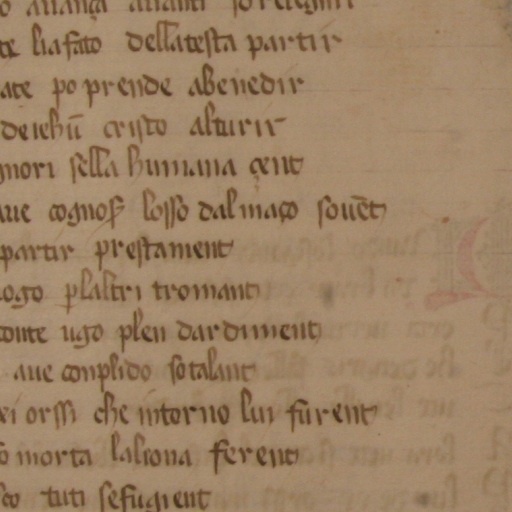 auança auanti
te lia fato della testa partir
ate po prende abenedir
de iehū cristo alturir
gnori sella humana çent
aue cognos losso dal maço souēt
partir prestament
ogo plaltri tromant
conte ugo plen dardiment
aue conplido so talant
orssi che intorno lui furent
morta laliona ferent
tuti se fugient